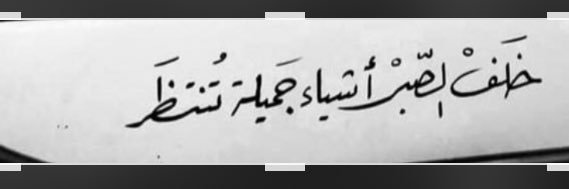 خَلفْ الصّبرْ أشياء جَميلة تُنتظَر